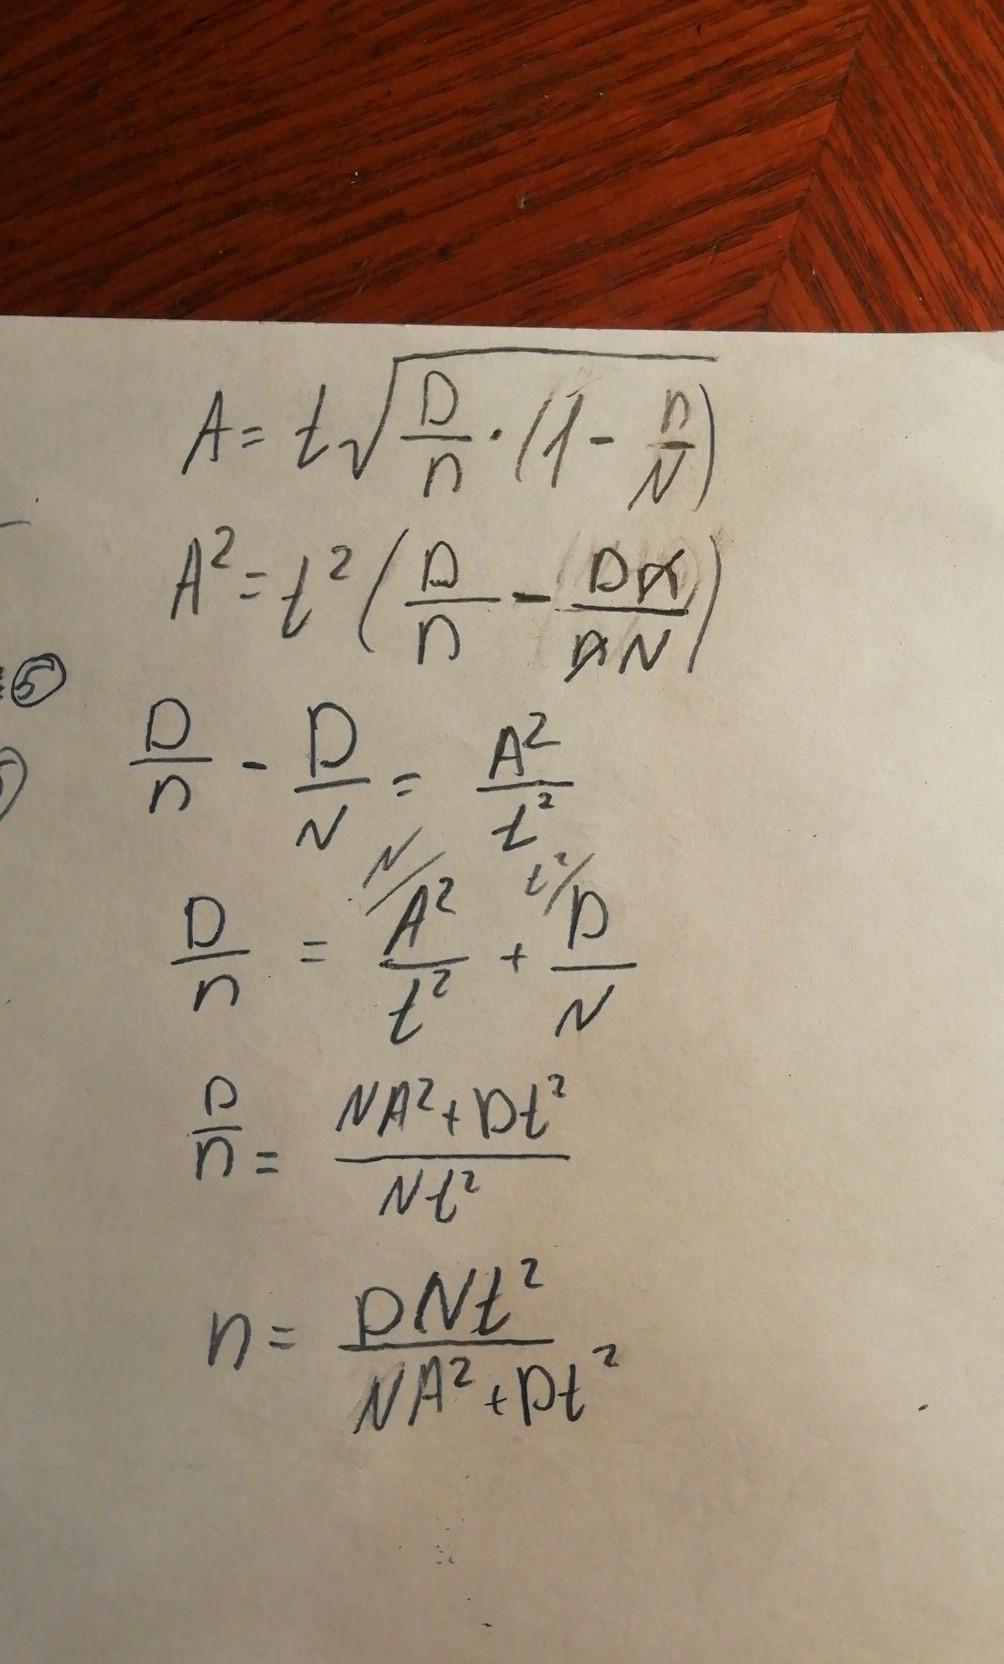 A = t√(D/n · (1 - n/N))
A² = t² (D/n - Dn/nN)
D/n - D/N = A²/t²
D/n = N/ A²/t² + t²/ D/N
D/n = (NA² + Dt²)/(Nt²)
n = DNt²/(NA² + Dt²)